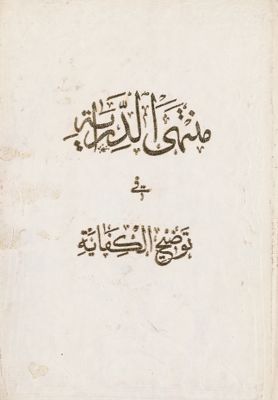 منتهى الدِّرَايَةِ
في
تَوضيحِ الكِفَايَةِ